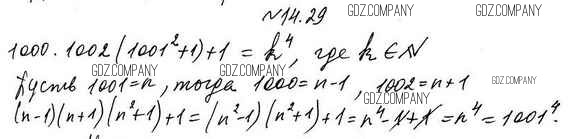 №14.29
GDZ.COMPANY GDZ.COMPANY
1000·1002(1001²+1)+1 = k⁴, где k ∈ N
GDZ.COMPANY GDZ.COMPANY GDZ.COMPANY
Пусть 1001=n, тогда 1000=n-1, 1002=n+1
GDZ.COMPANY GDZ.COMPANY
(n-1)(n+1)(n²+1)+1=(n²-1)(n²+1)+1=n⁴-1+1=n⁴=1001⁴.